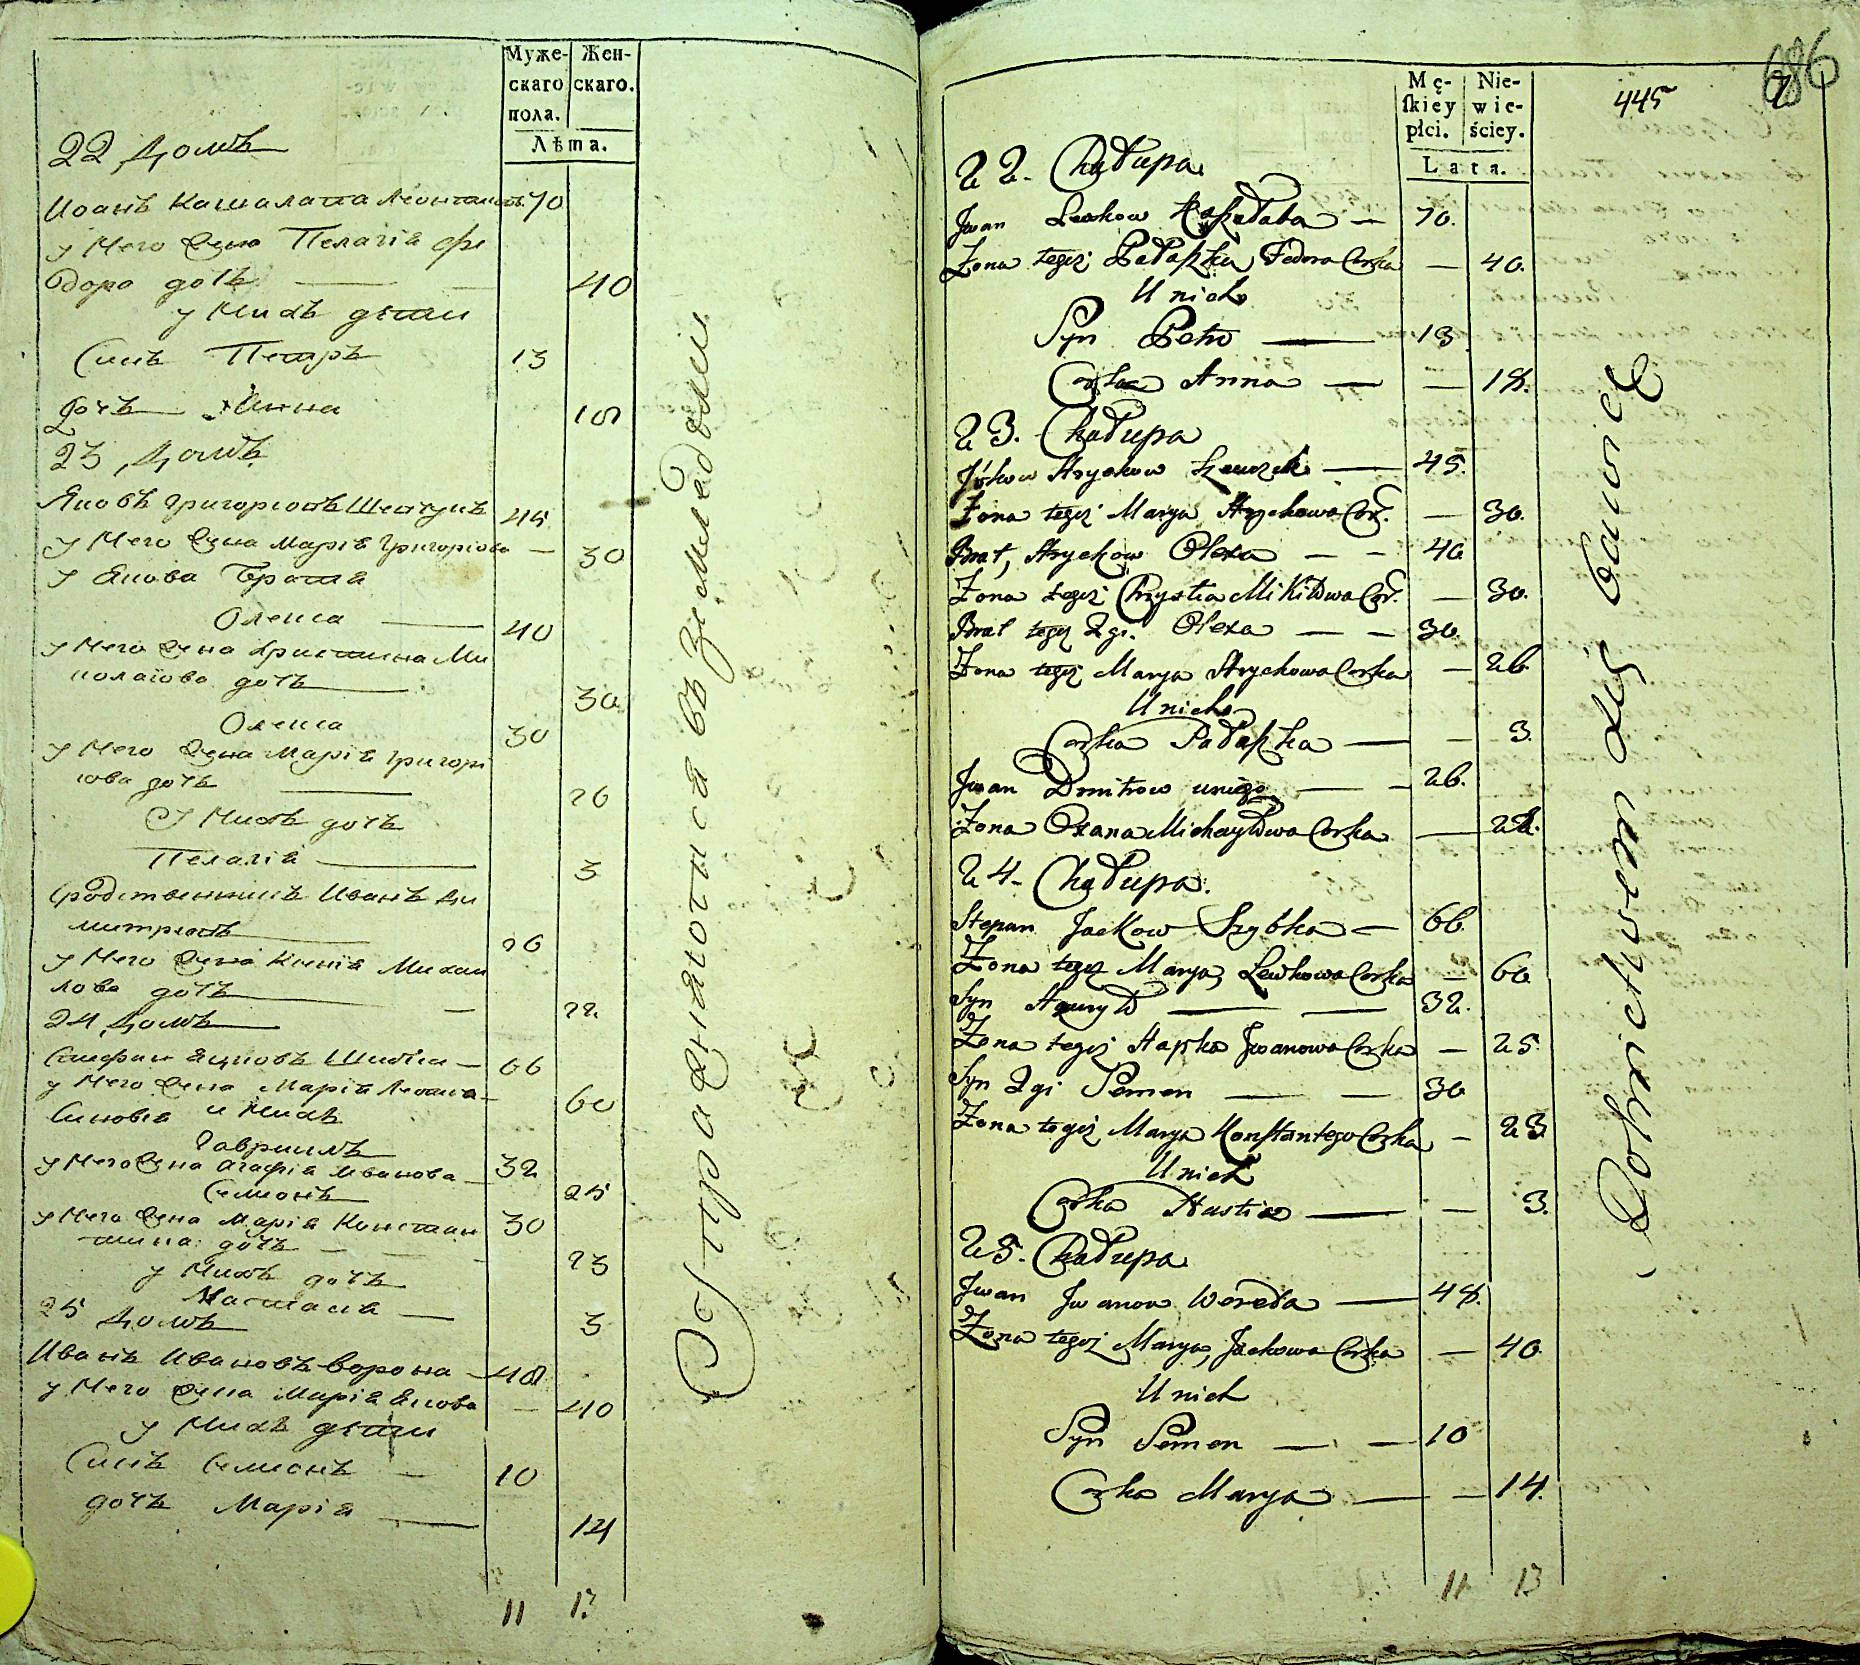 Муже- Жен-
скаго скаго.
пола.
Лѣта.
22 домъ
Иоанъ Кашалапа Леонтиевъ 70
у Него Жена Пелагiя Фе
дора дочь 40
у Нихъ дѣти
Синъ Петръ 13
Дочь Анна 18
23 домъ
Яковъ Григориевъ 45
у Него Жена Марiя Григориова — 30
у Якова Брата
Олекса 40
у Него Жена Христина Ми
колаiова дочь 30
Олекса 30
у Него Жена Марiя Григорi
iова дочь 26
У Нихъ дочь
Пелагiя 3
Сродственникъ Иванъ Ди
митриевъ 26
у Него Жена Ксенiя Михаи
лова дочь — 22
24 домъ
Стефан Яцковъ Шибка — 66
у Него Жена Марiя Левова — 60
Синовья у Нихъ
Гаврiилъ 32
у Него Жена Агафiя Иванова — 25
Семионъ 30
у Него Жена Марiя Констан
тина дочь — 23
у Нихъ дочь
Настасiя — 3
25 домъ
Иванъ Ивановъ Ворона — 48
у Него Жена Марiя Якова — 40
у Нихъ дѣти
Синъ Семионъ — 10
дочь Марiя 14
11 13
Упражняются въ Земледѣлiи
686
445
Mę- Nie-
ſkiey wie-
płci. ściey.
Lata.
22. Chałupa
Jwan Lewkow Kaszałaba — 70.
Zona tegoż Pałaszka Fedora Corka — 40.
U nich
Syn Petro — 13
Corka Anna — — 18.
23. Chałupa
Jćkow Hryckow Szewczuk — 45.
Zona tegoż Marya Hryckowa Cor. — 30.
Brat, Hryckow Olexa — — 40
Zona tegoż Chrystia Mikitowa Cor. — 30.
Brat tegoż 2gi. Olexa — — 30.
Zona tegoż Marya Hryckowa Corka — 26.
U nich
Corka Pałaszka — — 3.
Jwan Dmitrow uniego — — 26.
Zona Oxana Michayłowa Corka — 22.
24. Chałupa.
Stepan Jackow Szybka — 66.
Zona tegoż Marya, Lewkowa Corka — 60.
Syn Hawryło — — 32.
Zona tegoż Hapka Jwanowa Corka — 25.
Syn 2gi Semen — — 30
Zona tegoż Marya Konstantego Corka — 23.
U nich
Corka Nastia — — 3.
25. Chałupa
Jwan Jwanow Woroba — 48.
Zona tegoż Marya, Jackowa Corka — 40.
U nich
Syn Semen — — 10
Corka Marya — — 14.
11 13
Rolnictwem się bawią